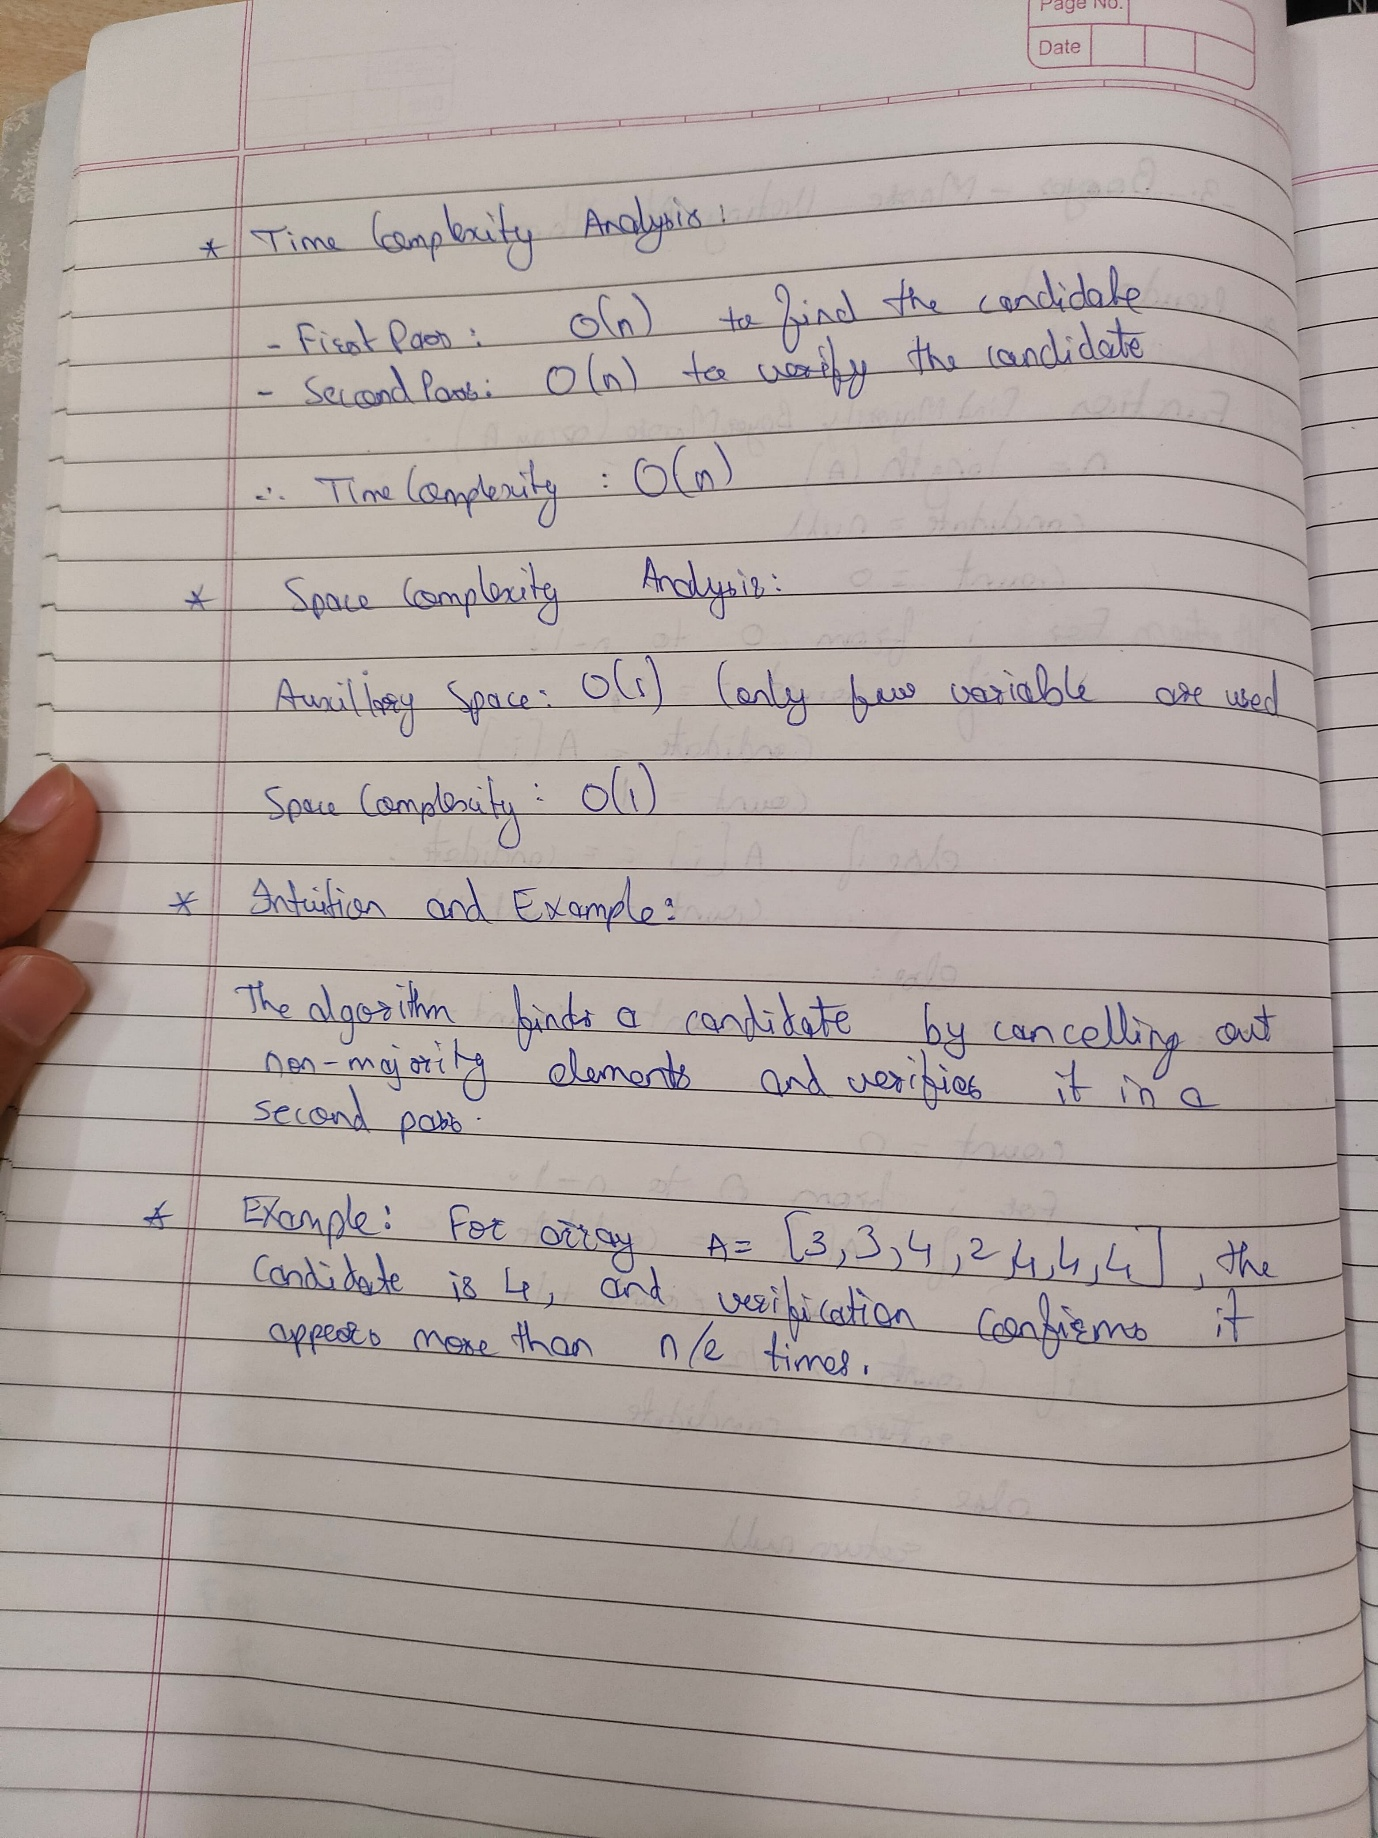 Page No.
Date
* Time Complexity Analysis:
- First Pass: O(n) to find the candidate
- Second Pass: O(n) to verify the candidate
∴ Time Complexity : O(n)
* Space Complexity Analysis:
Auxillary Space: O(1) (only few variable are used
Space Complexity: O(1)
* Intuition and Example:
The algorithm finds a candidate by cancelling out
non-majority elements and verifies it in a
second pass.
* Example: For array A= [3,3,4,2,4,4,4], the
candidate is 4, and verification confirms it
appears more than n/2 times.